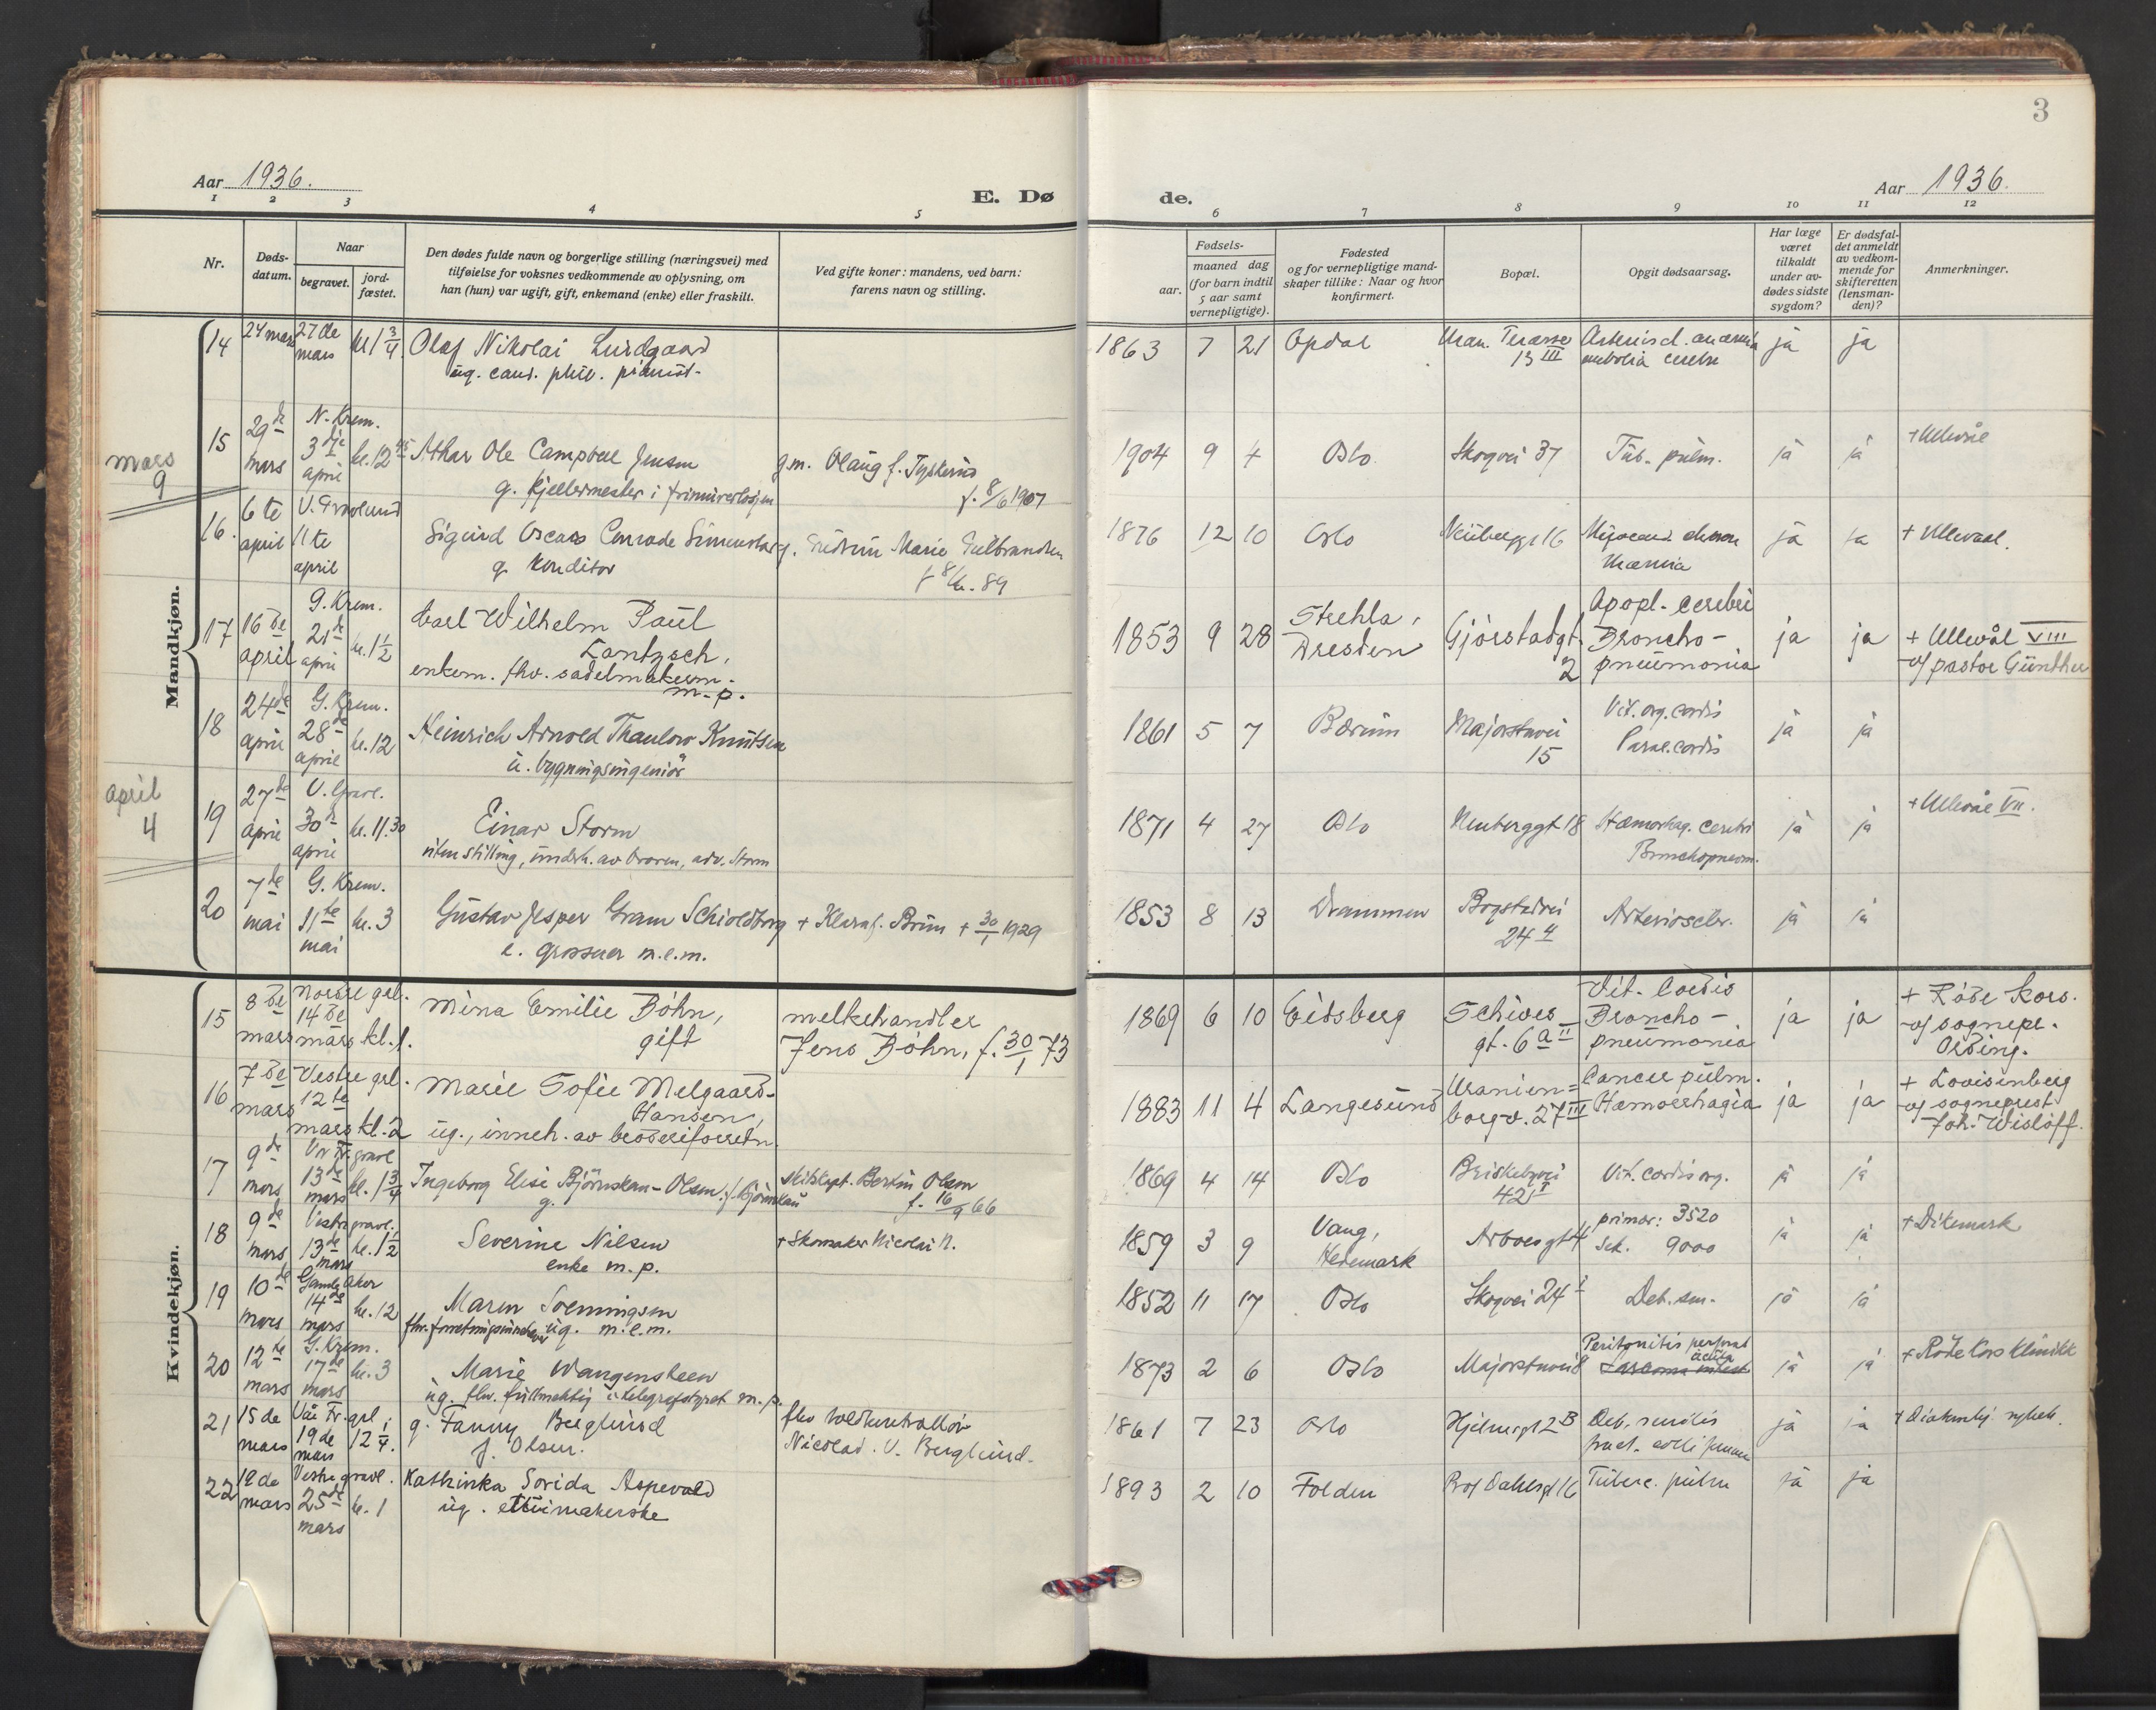 3
Aar 1936.
E. Dø
de.
Aar 1936.
1 2 3 4 5 6 7 8 9 10 11 12
Nr.
Døds-
datum.
Naar
begravet.
jord-
fæstet.
Den dødes fulde navn og borgerlige stilling (næringsvei) med
tilføielse for voksnes vedkommende av oplysning, om
han (hun) var ugift, gift, enkemand (enke) eller fraskilt.
Ved gifte koner: mandens, ved barn:
farens navn og stilling.
Fødsels-
aar.
maaned dag
(for barn indtil
5 aar samt
vernepligtige).
Fødested
og for vernepligtige mand-
skaper tillike: Naar og hvor
konfirmert.
Bopæl.
Opgit dødsaarsag.
Har læge
været
tilkaldt
under av-
dødes sidste
sygdom?
Er dødsfal-
det anmeldt
av vedkom-
mende for
skifteretten
(lensman-
den)?
Anmerkninger.
Mandkjøn.
14 24 mars 27de mars kl 1 3/4 Olaf Nikolai Lundgaard
ug. cand. phil. pianist.
1863 7 21 Opdal Uran. Terasse 13 III ja ja
mars
9
15 29de mars N. Krem. 3dje april kl. 12 45 Athar Ole Campbell Jensen
g. kjellermester i frimurerlosjen
g.m. Olaug f.
f. 8/6 1907
1904 9 4 Oslo Skogvei 37 Tub. pulm. ja ja + Ullevål
16. 6te april V. Gravlund 11te april Sigurd Oscar Conrade
g. konditor
g. Marie Gulbrandsen
1876 12 10 Oslo Neuberggt 16 Uræmia ja ja + Ullevaal.
17 16de april G. Krem. 21de april kl. 1 1/2 Carl Wilhelm Paul
Lantzsch,
enkem. fhv. sadelmakerm.
m. p.
1853 9 28 Strehla, Dresden Gjørstadgt. 2 Apopl. cerebri
Broncho-
pneumonia
ja ja + Ullevål VIII
v/ pastor Günther
18 24de april G. Krem. 28de april kl. 12 Heinrich Arnold Thaulow Knutsen
u. bygningsingeniør
1861 5 7 Bærum Majorstuvei 15 Vit. org. cordis
Paral. cordis
ja ja
april
4
19 27de april V. Gravl. 30te april kl. 11.30 Einar Storm
uten stilling, underh. av broren, adv. Storm
1871 4 27 Oslo Neuberggt 18 Hæmorhag. cerebri
Bronchopneum.
ja ja + Ullevål VII.
20 7de mai G. Krem. 11te mai kl. 3 Gustav Jesper Gram Schioldborg
e. grosserer m.e.m.
+ Klara f. Bruun + 30/1 1929
1853 8 13 Drammen Bogstadvei 24 Arterioscler. ja ja
Kvindekjøn.
15 8de mars Nordre grl. 14de mars kl. 1. Mina Emilie Bøhn,
gift
melkehandler
Jens Bøhn, f. 30/1 73
1869 6 10 Eidsberg Schives gt. 6 a II Vit. Cordis
Broncho-
pneumonia
ja ja + Røde Kors.
v/ sognepr.
Ording.
16 7de mars Vestre grl. 12te mars kl. 2 Marie Sofie Melgaard-
Hansen,
ug., inneh. av broderiforretn.
1883 11 4 Langesund Uranien=
borgv. 27 III
Cancer pulm.
Hæmorrhagia
ja ja + Lovisenberg
v/ sogneprest
Joh. Wisløff.
17 9de mars Vår Fr. gravl 13de mars kl. 1 3/4 Ingeborg Elise Bjørnskau-Olsen. f. Bjørnskau
g.
Bertin Olsen
f. 16/9 66
1869 4 14 Oslo Briskebyvei 42 I Vit. cordis org. ja ja
18 9de mars Vestre gravl. 13de mars kl. 1 1/2 Severine Nilsen
enke m.p.
+ Skomaker Nicolai N.
1859 3 9 Vang,
Hedemark
Arboesgt 4 primær: 3520
Sek. 9000
ja ja + Dikemark
19 10de mars Gamle Aker 14de mars kl. 12 Maren Soemningsen
ug. m.e.m.
1852 11 17 Oslo Skogvei 24 I Deb. sen. ja ja
20 12te mars G. Krem. 17de mars kl. 3 Marie Wangensteen
ug. fhv. fullmektig i telegrafstyret m.p.
1873 2 6 Oslo Majorstuvei 8 Peritonitis perforat
acuta
ja ja + Røde Kors Klinikk
21 15de mars Vår Fr. grl 19de mars 12 1/4. g. Fanny Berglund
f. Olsen.
fhv toldkontrollør
Nicolai. V. Berglund.
1861 7 23 Oslo Hjelmsgt 2B Deb. senilis
fract. colli femor
ja ja
22 18de mars Vestre gravl. 25de mars kl. 1 Kathinka Sorida Aspevold
ug. etuimakerske
1893 2 10 Folden Prof Dahlsgt 16 Tuberc. pulm ja ja